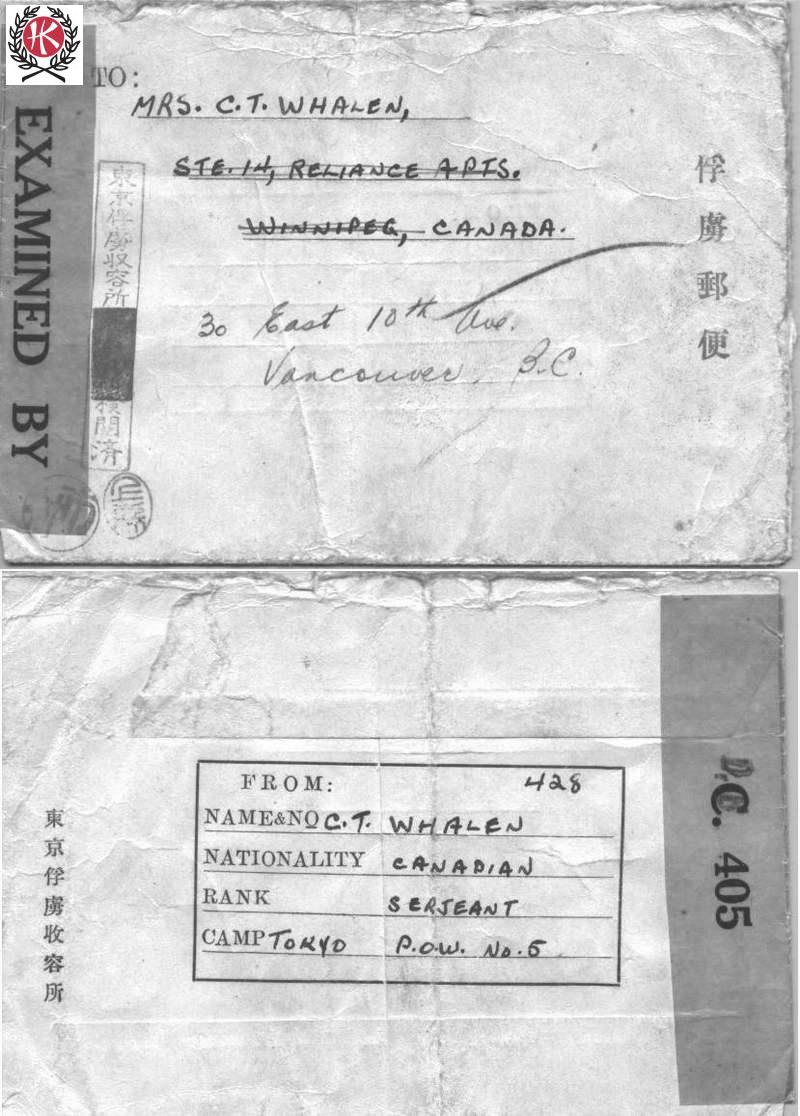 HK
TO:
MRS. C.T. WHALEN,
STE. 14, RELIANCE APTS.
WINNIPEG, CANADA.
30 East 10th Ave.
Vancouver, B.C.
EXAMINED BY
東京俘虜收容所
檢閲済
俘虜郵便
FROM: 428
NAME&NO C.T. WHALEN
NATIONALITY CANADIAN
RANK SERJEANT
CAMP TOKYO P.O.W. No. 5
東京俘虜收容所
D.C. 405